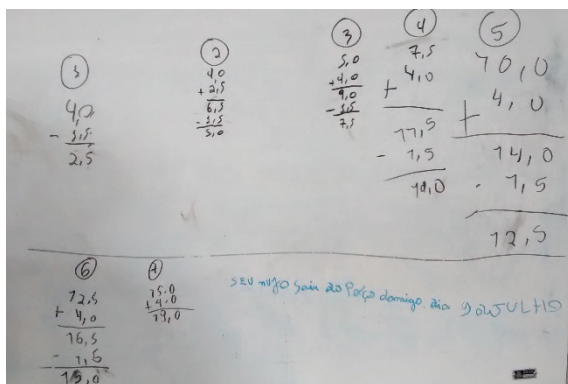 1
4,0
- 1,5
2,5
2
4,0
+ 2,5
6,5
- 1,5
5,0
3
5,0
+ 4,0
9,0
- 1,5
7,5
4
7,5
+ 4,0
11,5
- 1,5
10,0
5
10,0
+ 4,0
14,0
- 1,5
12,5
6
12,5
+ 4,0
16,5
- 1,5
15,0
7
15,0
+ 4,0
19,0
sair do Poço domigo dia 9 JULHO